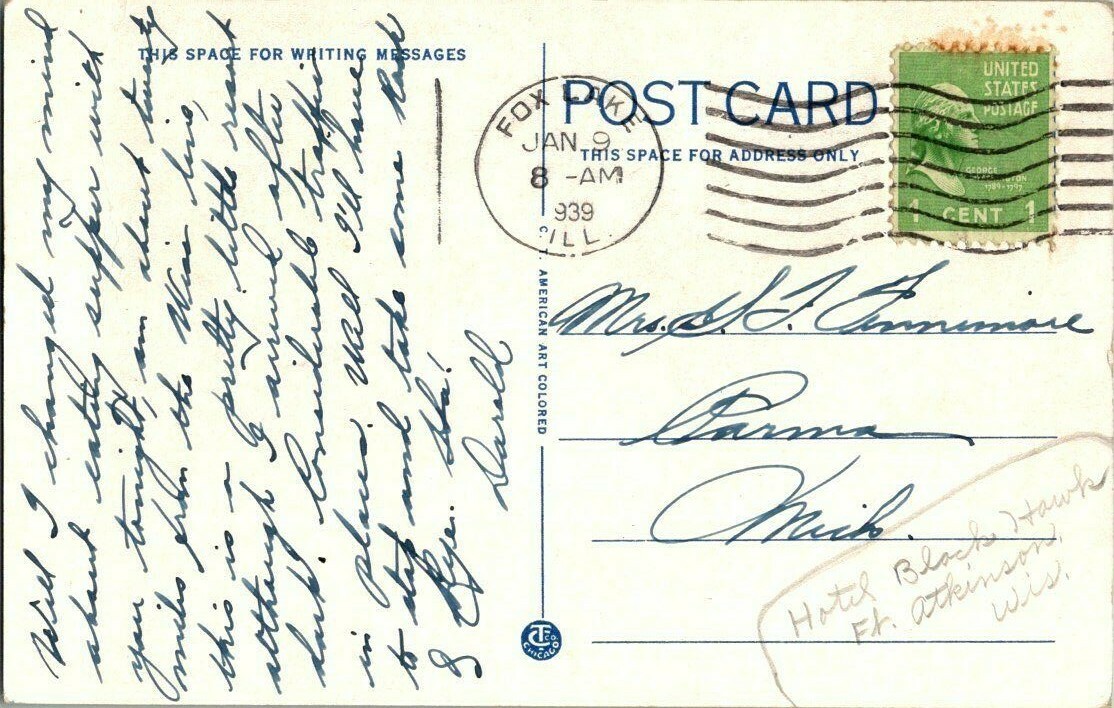 THIS SPACE FOR WRITING MESSAGES
Well I changed my mind
about eating supper with
you tonight, am about twenty
miles from the Wis line,
this is a pretty little resort
although I arrived after
dark. Considerable traffic
in places. Well I'll have
to stop and take some
& Bye.
Darold
C.T. AMERICAN ART COLORED
CTCO CHICAGO
POST CARD
THIS SPACE FOR ADDRESS ONLY
FOX LAKE
JAN 9
8 -AM
939
ILL.
UNITED
STATES
POSTAGE
GEORGE
WASHINGTON
1789-1797
1 CENT 1
Mrs. S. F. Fennimore
Parma
Mich.
Hotel Black Hawk
Ft. Atkinson.
Wis.